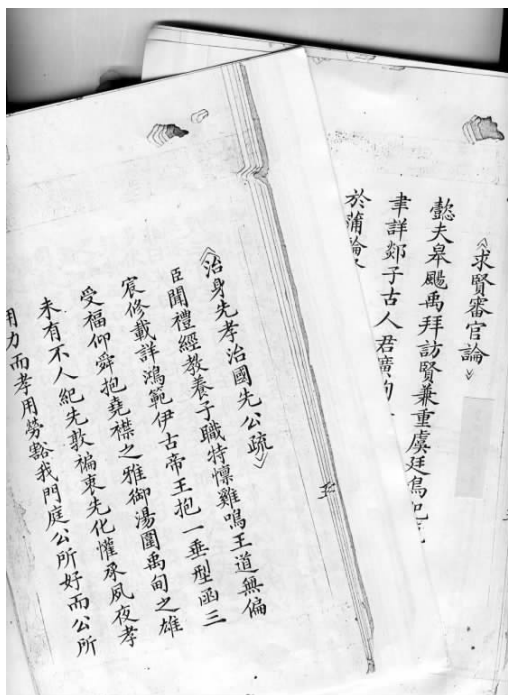 《求賢審官論》
懿夫皋颺禹拜訪賢兼重虞廷鳥紀
聿詳郯子古人君廣
於蒲輪
《治身先孝治國先公疏》
臣聞禮經教養子職特懍雞鳴王道無偏
宸修載詳鴻範伊古帝王抱一垂型函三
受福仰舜抱堯襟之雅御湯圍禹甸之雄
未有不人紀先敦褊衷先化懽承夙夜孝
用力而孝用勞豁我門庭公所好而公所